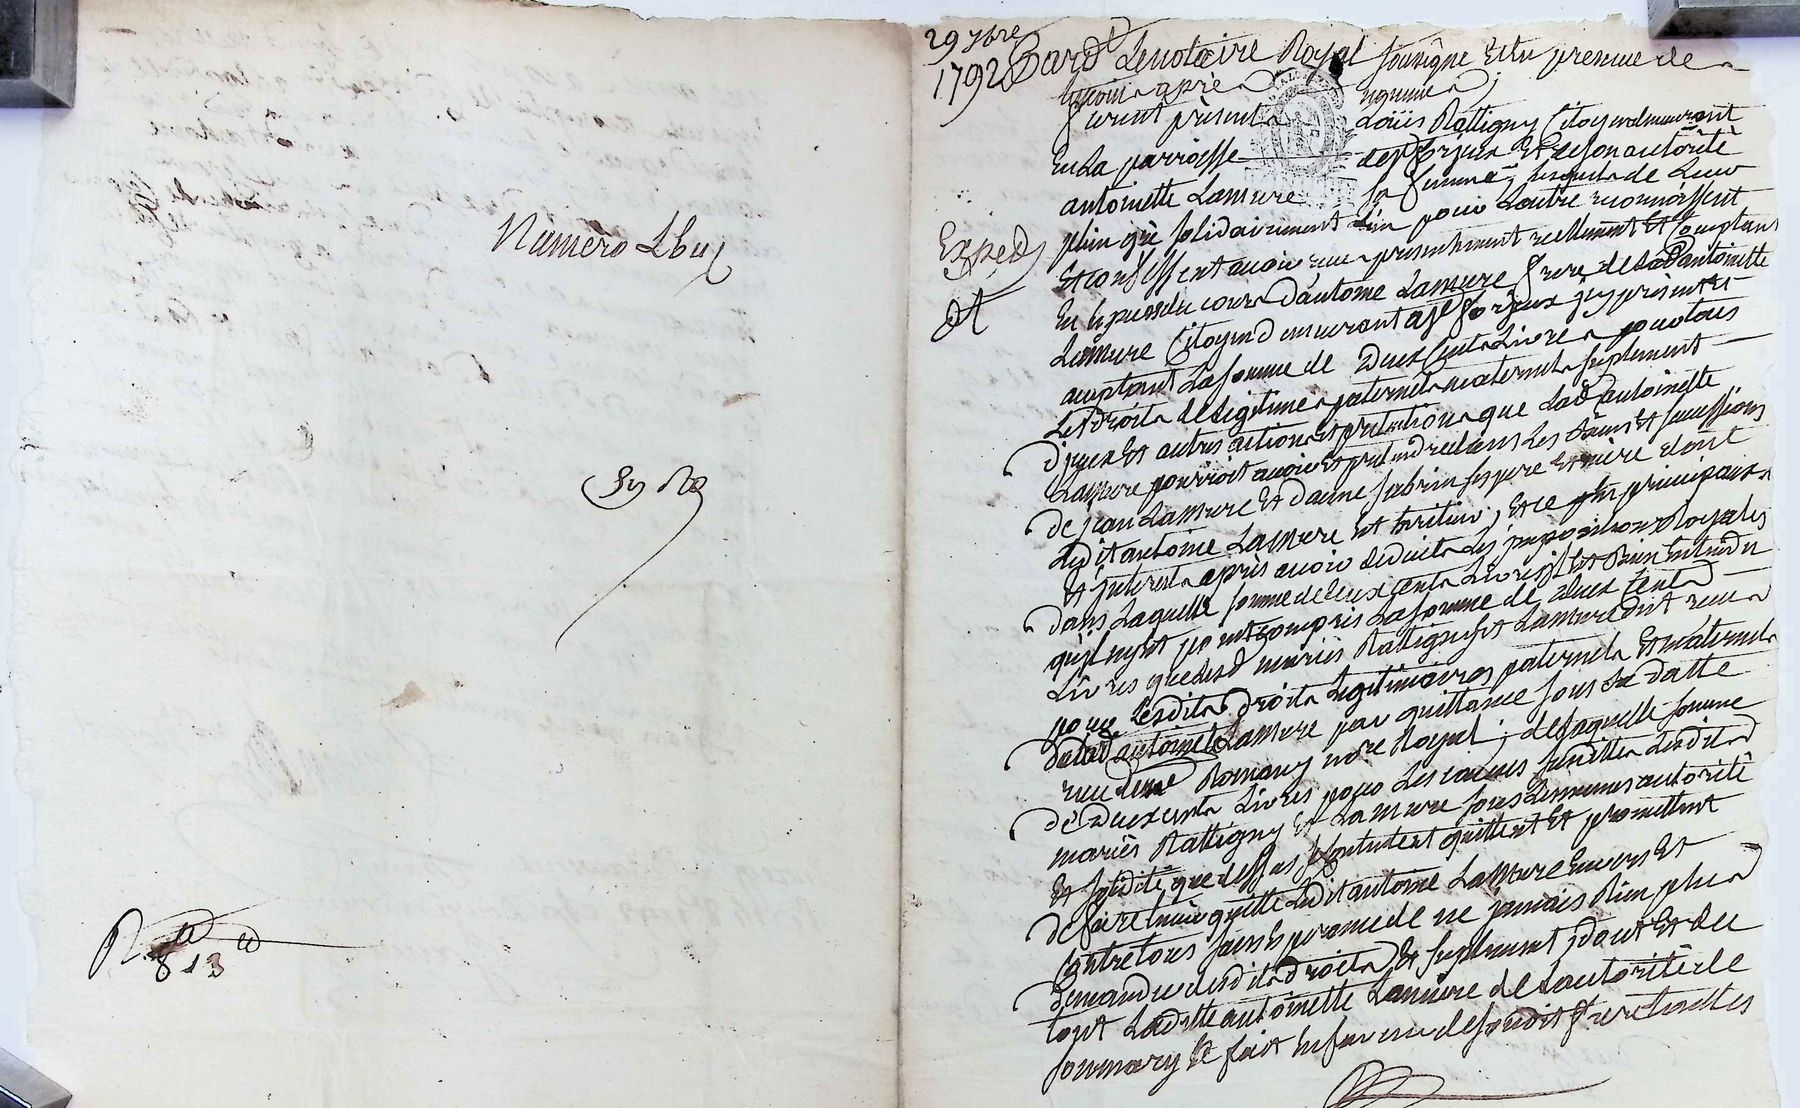 Numero
813
29 xbre
1792 Pard. Le notaire Royal soussigne et en presence de
temoins apres nommes
furent presents Loüis Rattigny Citoyen demeurant
En La parroisse de st forjeux Et de son autôrité
antoinette Lamure sa femme, lesquels de Leur
plein grè solidairement L'un pour Lautre reconnoissent
Exped
Et confessent avoir reçu presentement reellement Et Comptant
En especes du cours d'antoine Lamure frere de lad antoinette
Lamure Citoyen demeurant a st forjeux j'cy prèsent Et
acceptant La somme de Deux Cents Livres pour tous
Les droits de Legitimes paternels maternels suplement
d'jceux Et autres actions Et pretentions que Lad antoinette
Lamure pourrioit avoir Et prètendre dans Les biens Et successions
de jean Lamure Et dame fabrin ses pere Et mère dont
Ledit antoine Lamure Est heritier, Et ce principaux
Et jnterets aprés avoir deduits Les jmpositions Royales
dans Laquelle somme de deux cents Livres jl Est bien Entendu
qu'jl n'y Est point compris La somme de deux Cents
Livres que lesd mariés Rattigny Et Lamure ont reçus
pour Lesdits droits Legitimaires paternels Et maternels
de lad antoinette Lamure par quittance sous sa datte
reçu Romany no.re Royal, de laquelle somme
de Deux cents Livres pour Les causes susdittes Lesdits
mariés Rattigny Et Lamure sous Les mêmes autorité
Et solidité que dessus se contentent quittent Et promettent
de faire tenir quitte Ledit antoine Lamure Envers Et
Contre tous jls promesse de ne jamais Rien plus
demander desdits droits Et suplement, dont Et du
tout Laditte antoinette Lamure de L'autorité de
son mary se fait En faveur de sondit frere toutes